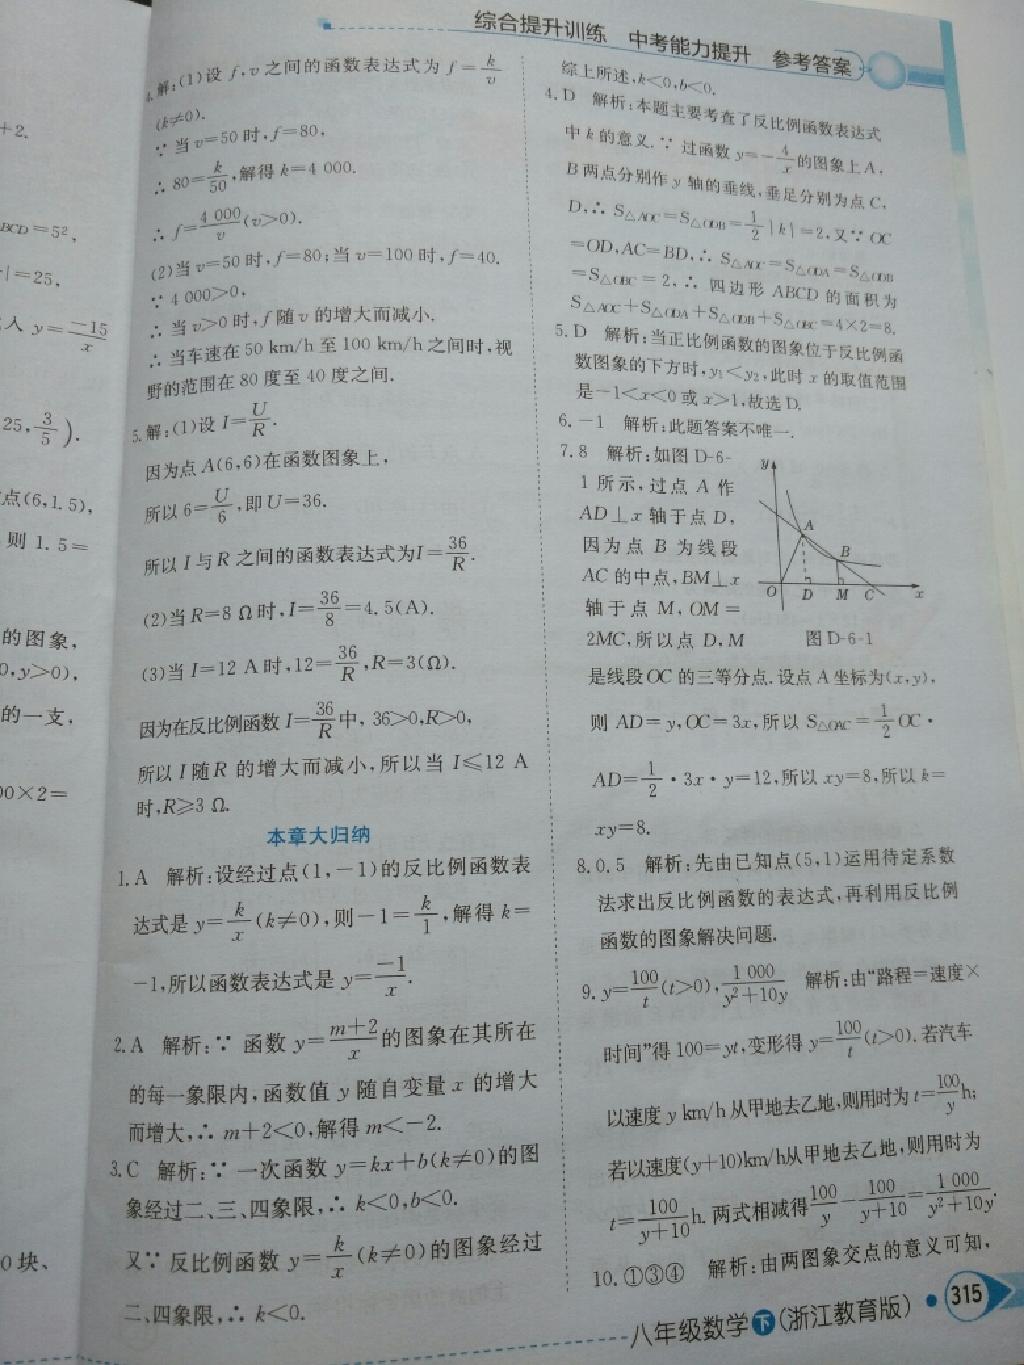 综合提升训练 中考能力提升 参考答案
+2.
BCD=5²,
-|=25,
人 y=-15/x
25, 3/5).
点(6,1.5),
则 1.5=
的图象,
0,y>0),
的一支,
00×2=
0块、
4.解:(1)设 f,v之间的函数表达式为 f=k/v
(k≠0).
∵当 v=50 时,f=80,
∴80=k/50,解得 k=4 000.
∴f=4 000/v(v>0).
(2)当 v=50 时,f=80;当 v=100 时,f=40.
∵4 000>0,
∴当 v>0 时,f 随 v 的增大而减小.
∴当车速在 50 km/h 至 100 km/h 之间时,视
野的范围在 80 度至 40 度之间.
5.解:(1)设 I=U/R.
因为点 A(6,6)在函数图象上,
所以 6=U/6,即 U=36.
所以 I 与 R 之间的函数表达式为I=36/R.
(2)当 R=8 Ω 时,I=36/8=4.5(A).
(3)当 I=12 A 时,12=36/R,R=3(Ω).
因为在反比例函数 I=36/R中, 36>0,R>0,
所以 I 随 R 的增大而减小,所以当 I≤12 A
时,R≥3 Ω.
本章大归纳
1.A 解析:设经过点(1,-1)的反比例函数表
达式是 y=k/x(k≠0),则-1=k/1,解得 k=
-1,所以函数表达式是 y=-1/x.
2.A 解析:∵ 函数 y=m+2/x的图象在其所在
的每一象限内,函数值 y 随自变量 x 的增大
而增大,∴ m+2<0,解得 m<-2.
3.C 解析:∵ 一次函数 y=kx+b(k≠0)的图
象经过二、三、四象限,∴ k<0,b<0.
又∵ 反比例函数 y=k/x(k≠0)的图象经过
二、四象限,∴ k<0.
综上所述,k<0,b<0.
4.D 解析:本题主要考查了反比例函数表达式
中 k 的意义.∵ 过函数 y=-4/x的图象上 A,
B 两点分别作 y 轴的垂线,垂足分别为点 C,
D,∴ S△AOC=S△ODB=1/2|k|=2,又∵ OC
=OD,AC=BD,∴ S△AOC=S△ODA=S△ODB
=S△OBC=2,∴ 四边形 ABCD 的面积为
S△AOC+S△ODA+S△ODB+S△OBC=4×2=8.
5.D 解析:当正比例函数的图象位于反比例函
数图象的下方时,y₁<y₂,此时 x 的取值范围
是-1<x<0 或 x>1,故选 D.
6.-1 解析:此题答案不唯一.
7.8 解析:如图 D-6-
1 所示,过点 A 作
AD⊥x 轴于点 D,
因为点 B 为线段
AC 的中点,BM⊥x
轴于点 M,OM=
2MC,所以点 D,M
y
A
B
O D M C x
图 D-6-1
是线段OC 的三等分点.设点 A 坐标为(x,y),
则 AD=y,OC=3x,所以 S△OAC=1/2 OC·
AD=1/2·3x·y=12,所以 xy=8,所以 k=
xy=8.
8.0.5 解析:先由已知点(5,1)运用待定系数
法求出反比例函数的表达式,再利用反比例
函数的图象解决问题.
9.y=100/t(t>0),1 000/y²+10y 解析:由“路程=速度×
时间”得 100=yt,变形得 y=100/t(t>0).若汽车
以速度 y km/h 从甲地去乙地,则用时为 t=100/y h;
若以速度(y+10)km/h从甲地去乙地,则用时为
t=100/y+10 h.两式相减得100/y-100/y+10=1 000/y²+10y.
10.①③④ 解析:由两图象交点的意义可知,
八年级数学下(浙江教育版)
315